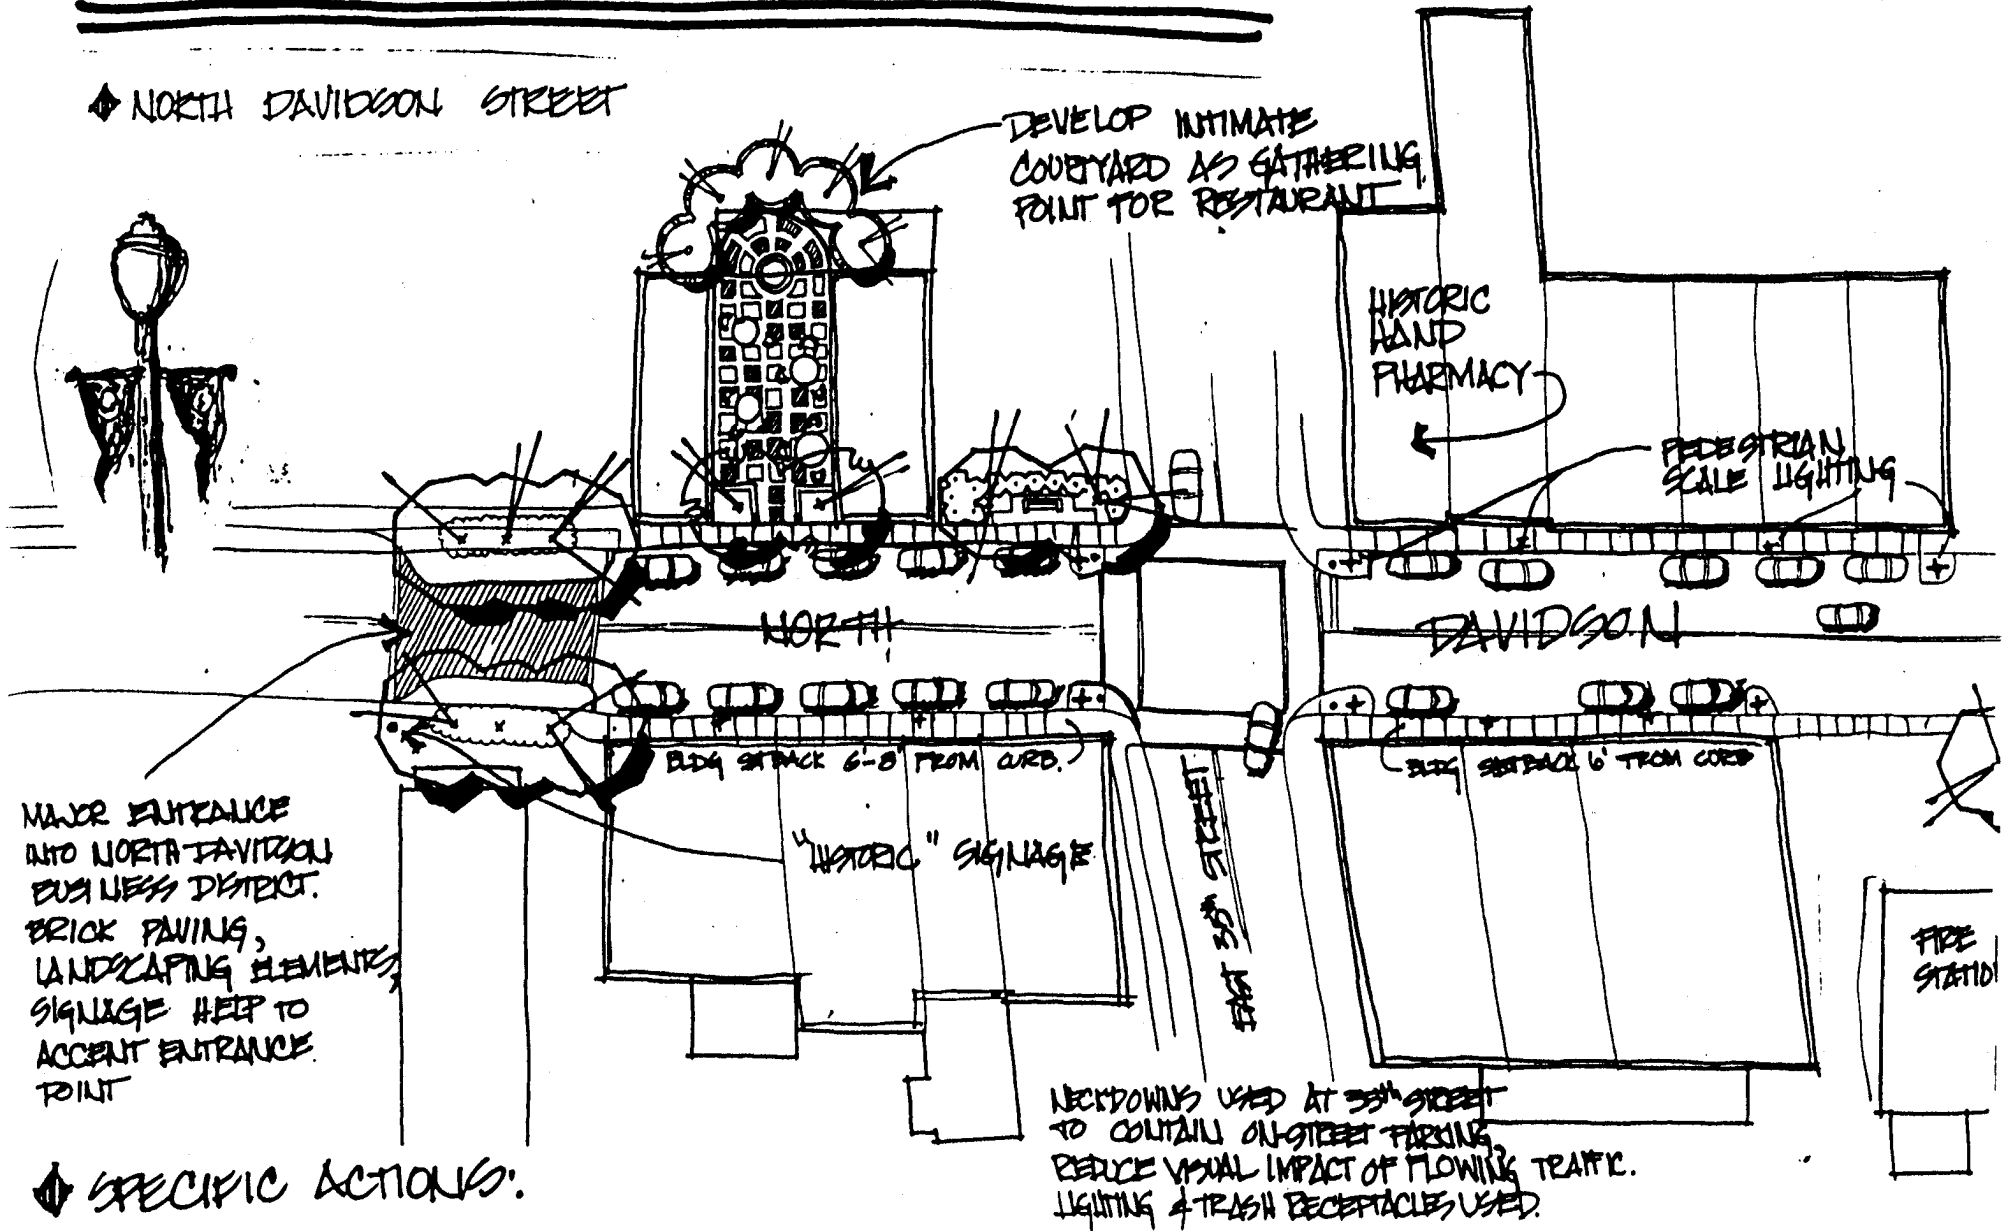 NORTH DAVIDSON STREET
DEVELOP INTIMATE
COURTYARD AS GATHERING
POINT FOR RESTAURANT
HISTORIC
HAND
PHARMACY
PEDESTRIAN
SCALE LIGHTING
NORTH
DAVIDSON
BLDG SETBACK 6'-8' FROM CURB.
BLDG SETBACK 6' FROM CURB
MAJOR ENTRANCE
INTO NORTH DAVIDSON
BUSINESS DISTRICT.
BRICK PAVING,
LANDSCAPING ELEMENTS,
SIGNAGE HELP TO
ACCENT ENTRANCE
POINT
"HISTORIC" SIGNAGE
EAST 35th STREET
FIRE
STATIO
NECKDOWNS USED AT 35th STREET
TO CONTAIN ON-STREET PARKING,
REDUCE VISUAL IMPACT OF FLOWING TRAFFIC.
LIGHTING & TRASH RECEPTACLES USED.
SPECIFIC ACTIONS: